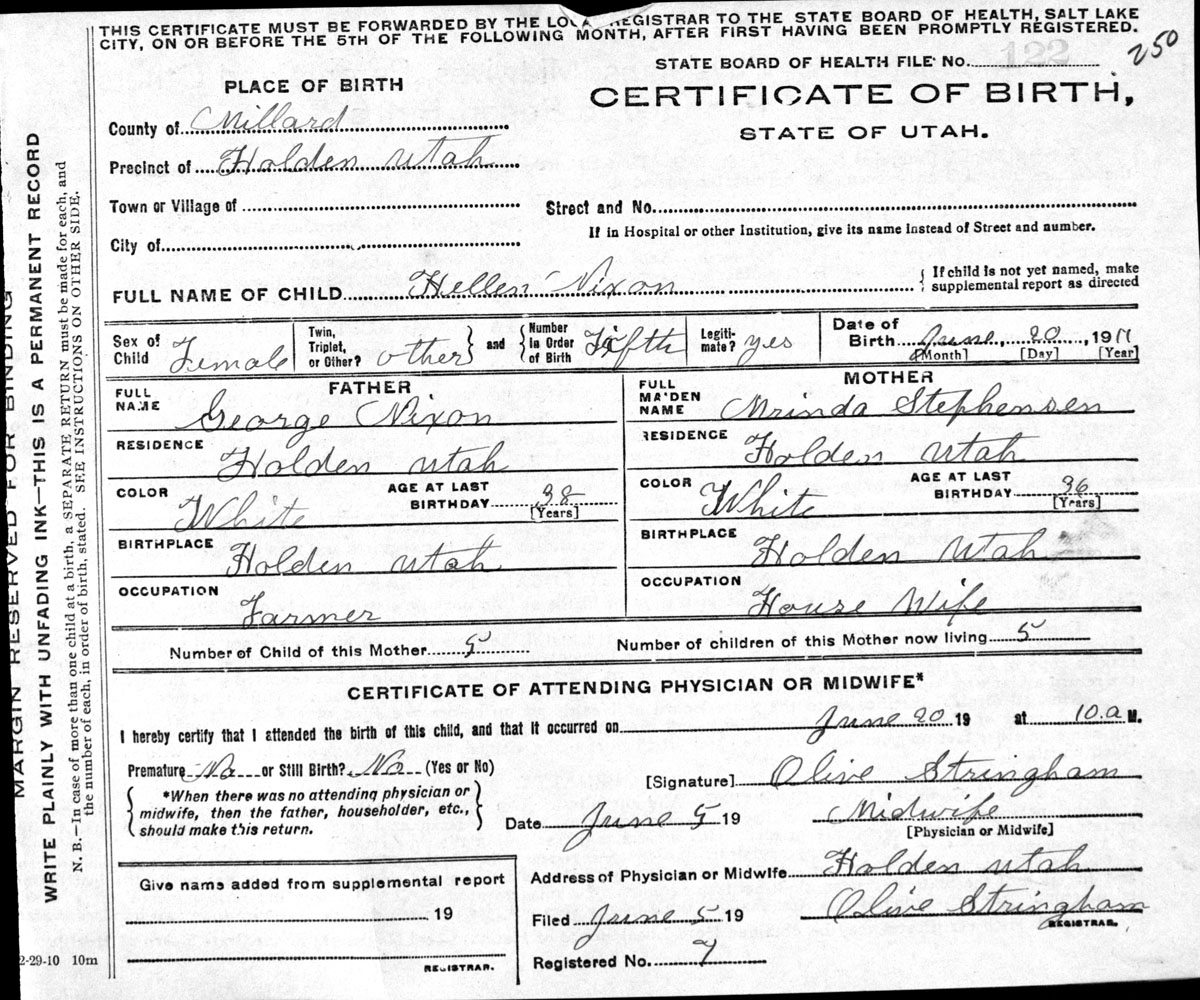 THIS CERTIFICATE MUST BE FORWARDED BY THE LOCAL REGISTRAR TO THE STATE BOARD OF HEALTH, SALT LAKE
CITY, ON OR BEFORE THE 5TH OF THE FOLLOWING MONTH, AFTER FIRST HAVING BEEN PROMPTLY REGISTERED.
250
STATE BOARD OF HEALTH FILE No. 122
PLACE OF BIRTH
CERTIFICATE OF BIRTH,
STATE OF UTAH.
County of Millard
Precinct of Holden Utah
Town or Village of
Street and No.
If in Hospital or other Institution, give its name instead of Street and number.
City of
FULL NAME OF CHILD Hellen Nixon
If child is not yet named, make
supplemental report as directed
Sex of Child Female
Twin, Triplet, or Other? other
and
Number in Order of Birth Fifth
Legiti-mate? yes
Date of Birth June, 20, 1911
[Month] [Day] [Year]
FATHER
FULL NAME George Nixon
RESIDENCE Holden Utah
COLOR White
AGE AT LAST BIRTHDAY 38
[Years]
BIRTHPLACE Holden Utah
OCCUPATION Farmer
MOTHER
FULL MAIDEN NAME Mrinda Stephensen
RESIDENCE Holden Utah
COLOR White
AGE AT LAST BIRTHDAY 36
[Years]
BIRTHPLACE Holden Utah
OCCUPATION House Wife
Number of Child of this Mother 5
Number of children of this Mother now living 5
CERTIFICATE OF ATTENDING PHYSICIAN OR MIDWIFE*
I hereby certify that I attended the birth of this child, and that it occurred on June 20 19 at 10.a M.
Premature No or Still Birth? No (Yes or No)
*When there was no attending physician or
midwife, then the father, householder, etc.,
should make this return.
[Signature] Olive Stringham
Date June 5 19 Midwife
[Physician or Midwife]
Address of Physician or Midwife Holden Utah
Filed June 5 19 Olive Stringham
REGISTRAR.
Registered No. 7
Give name added from supplemental report
19
REGISTRAR.
2-29-10 10m
MARGIN RESERVED FOR BINDING
WRITE PLAINLY WITH UNFADING INK—THIS IS A PERMANENT RECORD
N. B.—In case of more than one child at a birth, a SEPARATE RETURN must be made for each, and
the number of each, in order of birth, stated. SEE INSTRUCTIONS ON OTHER SIDE.